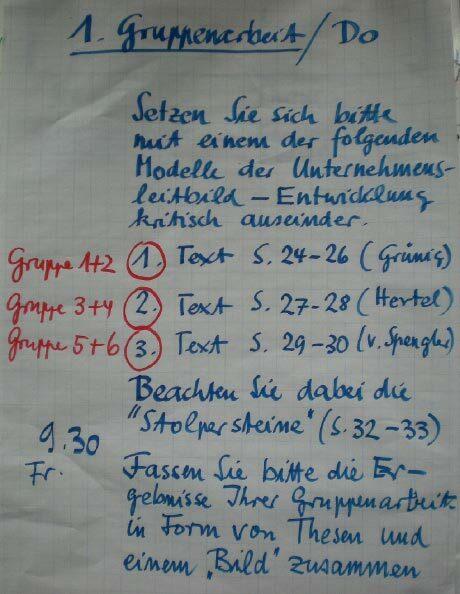 1. Gruppenarbeit/Do
Setzen Sie sich bitte
mit einem der folgenden
Modelle der Unternehmens-
leitbild – Entwicklung
kritisch auseinder.
Gruppe 1+2 1. Text S. 24-26 (Grünig)
Gruppe 3+4 2. Text S. 27-28 (Hertel)
Gruppe 5+6 3. Text S. 29-30 (v. Spengler)
Beachten Sie dabei die
"Stolpersteine" (S. 32-33)
9.30
Fr.
Fassen Sie bitte die Er-
gebnisse Ihrer Gruppenarbeit
in Form von Thesen und
einem „Bild" zusammen